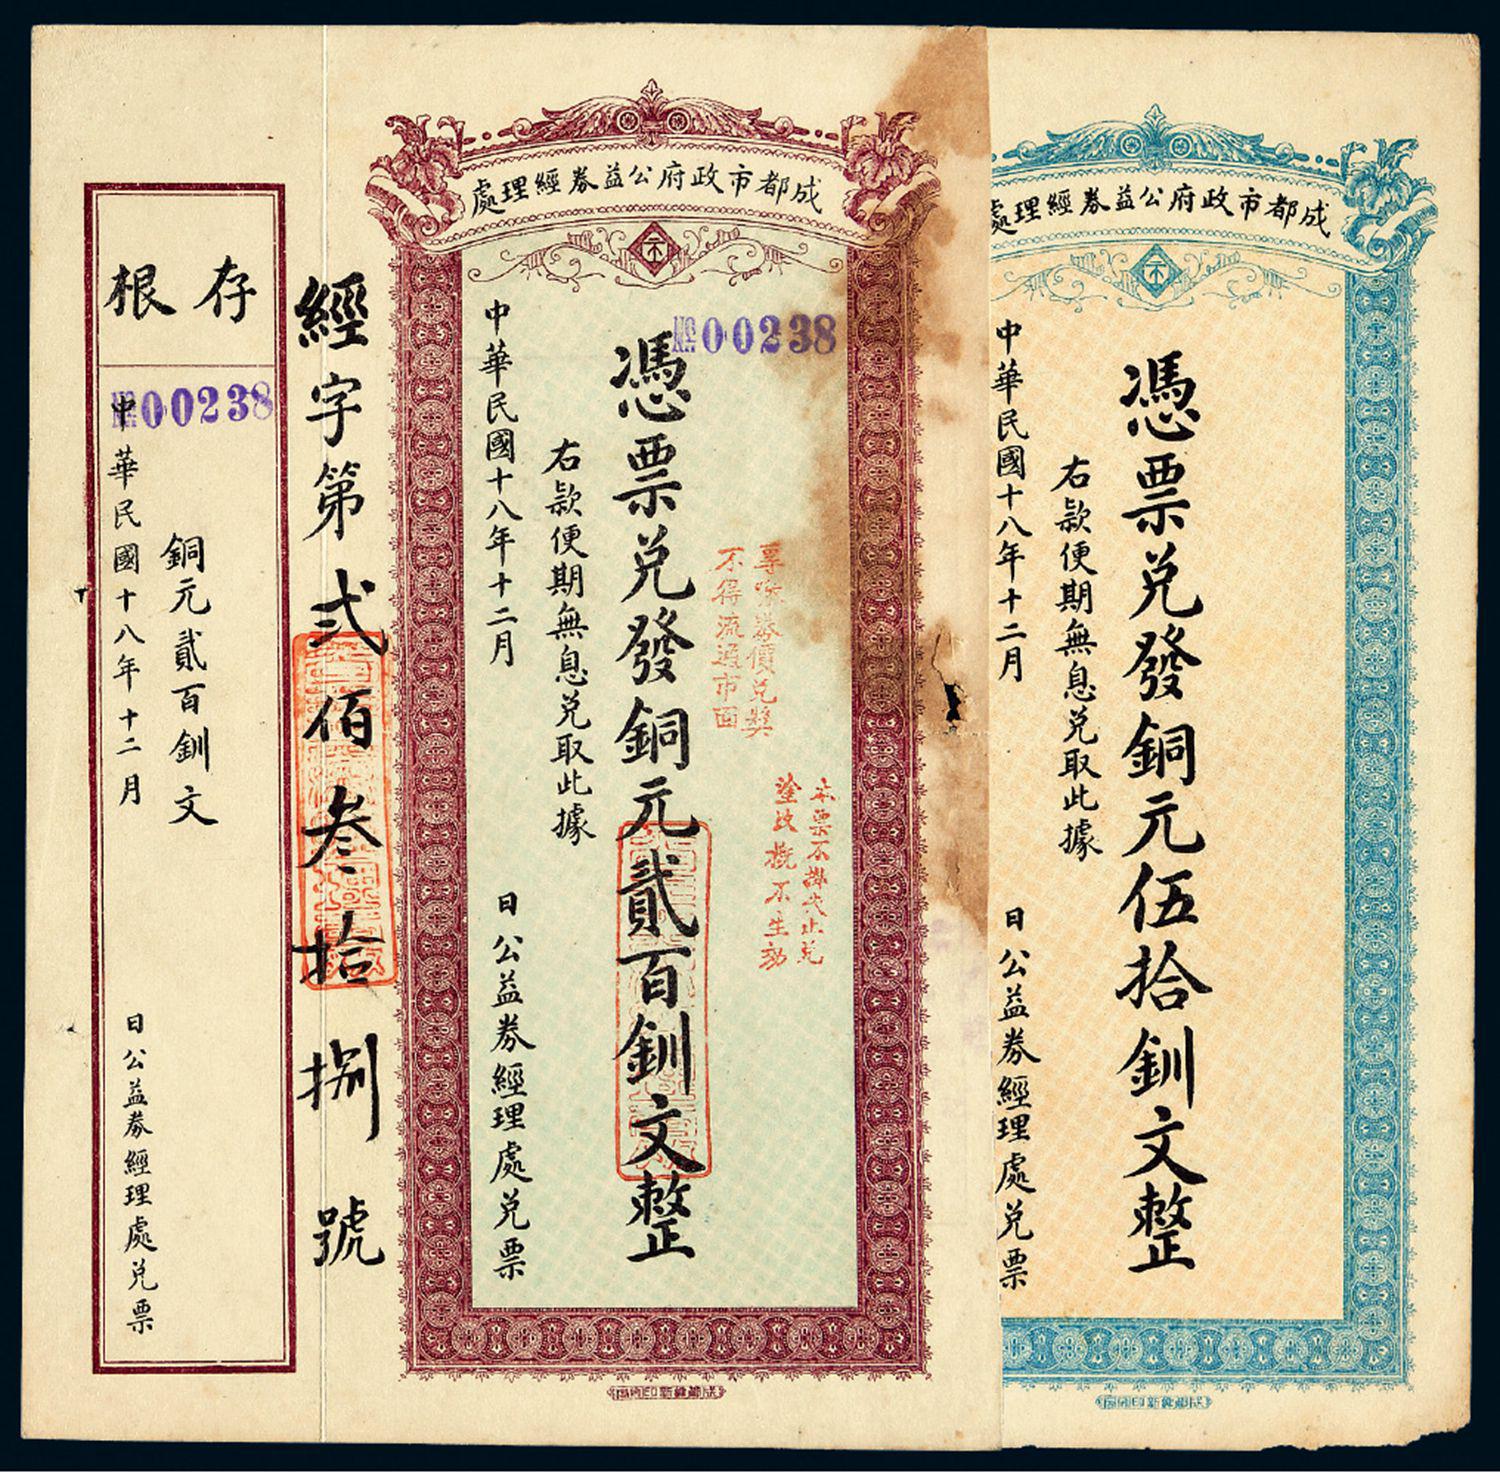 成都市政府公益券經理處
№00238
憑票兑發銅元貳百釧文整
右款便期無息兑取此據
中華民國十八年十二月 日公益券經理處兑票
券價兑獎
不得流通市面
本票不掛失止兑
塗改概不生効
經字第弍佰叁拾捌號
存根
№00238
銅元貳百釧文
中華民國十八年十二月 日公益券經理處兑票
成都市政府公益券經理處
憑票兑發銅元伍拾釧文整
右款便期無息兑取此據
中華民國十八年十二月 日公益券經理處兑票